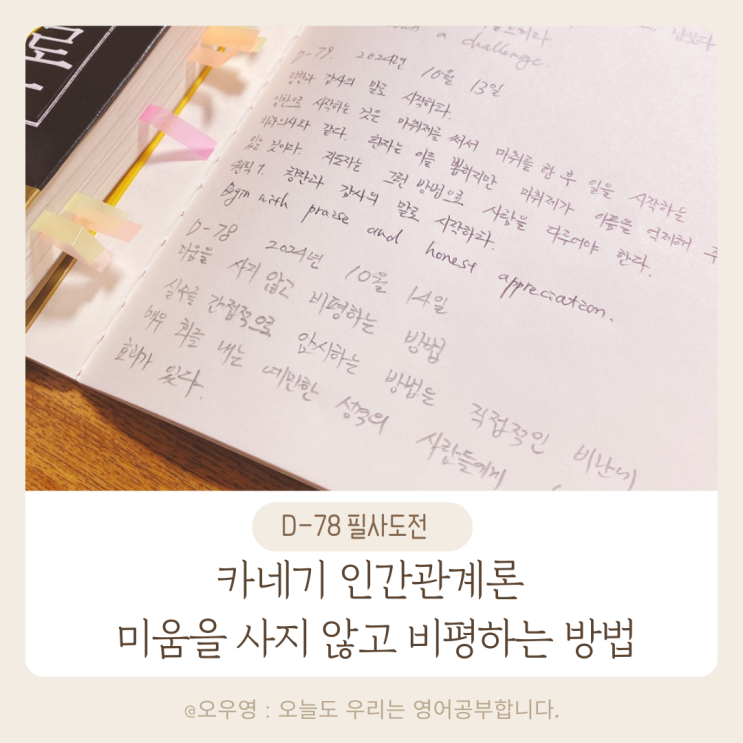 with a challenge.
D-79. 2024년 10월 13일
칭찬과 감사의 말로 시작하라.
칭찬으로 시작하는 것은 마취제를 써서 마취를 한 후 일을 시작하는
치과의사와 같다. 환자는 이를 뽑히지만 마취제가 아픔을 억제해 주
있을 것이다. 지도자는 그런 방법으로 사람을 다루어야 한다.
원칙 1. 칭찬과 감사의 말로 시작하라.
Begin with praise and honest appreciation.
D-78 2024년 10월 14일
미움을 사지 않고 비평하는 방법
실수를 간접적으로 암시하는 방법은 직접적인 비난에
매우 화를 내는 예민한 성격의 사람들에게
효과가 있다.
D-78 필사도전
카네기 인간관계론
미움을 사지 않고 비평하는 방법
@오우영 : 오늘도 우리는 영어공부합니다.